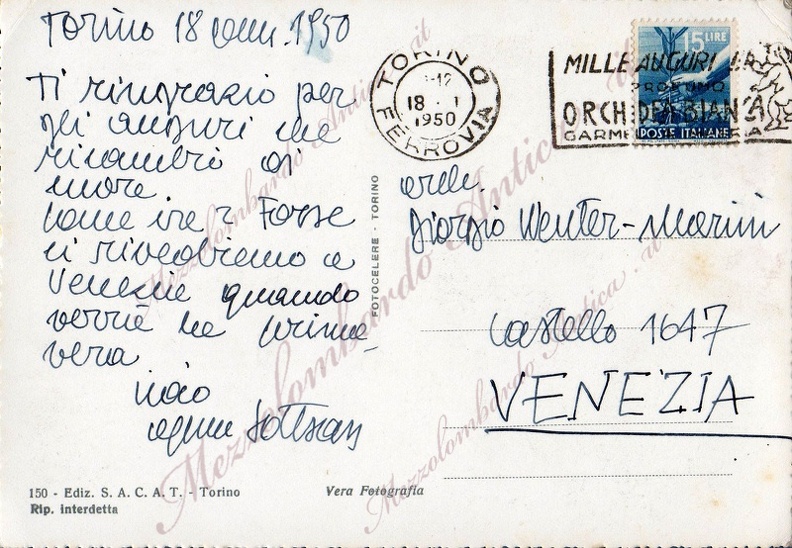 Torino 18 genn. 1950
Ti ringrazio per
gli auguri che
ricambio di
cuore
come va? Forse
ci rivedremo a
Venezia quando
verrà la prima-
vera
Ciao
Sottsass
150 - Ediz. S. A. C. A. T. - Torino
Rip. interdetta
Vera Fotografia
FOTOCELERE - TORINO
TORINO
18 . 1
1950
FERROVIA
MILLE AUGURI
ORCHIDEA BIANCA
15 LIRE
POSTE ITALIANE
arch.
Giorgio Wenter-Marini
Castello 1647
VENEZIA
Mezzolombardo Antica.it
Mezzolombardo Antica.it
Mezzolombardo Antica.it